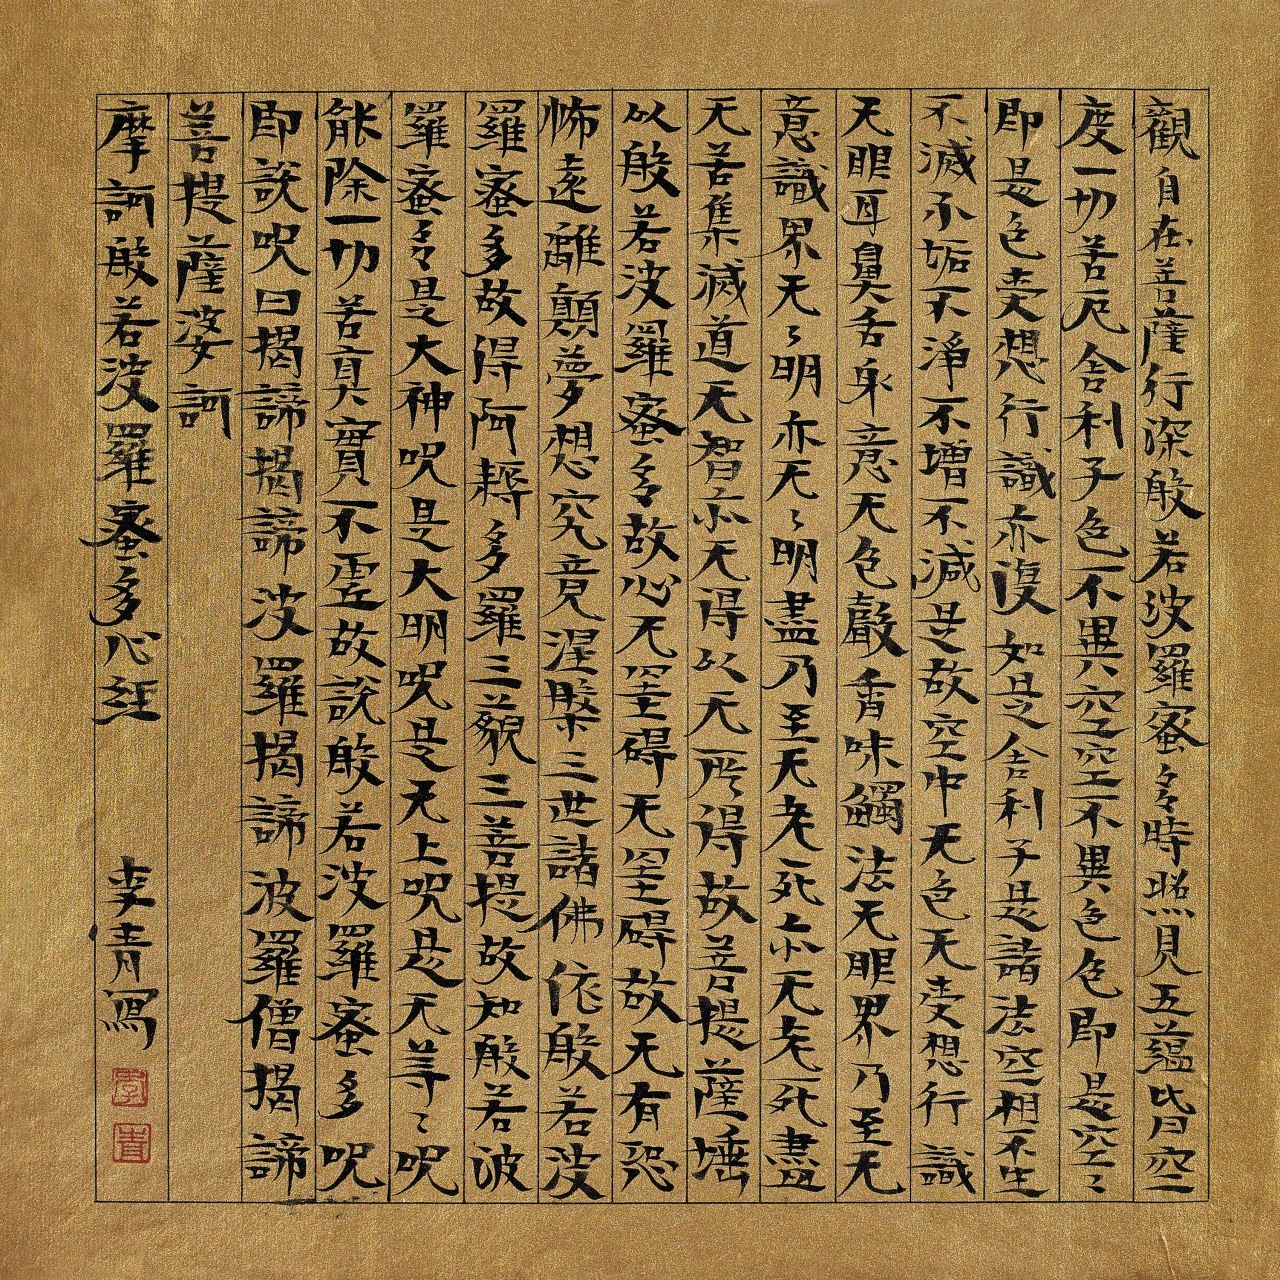 觀自在菩薩行深般若波羅蜜多時照見五蘊皆曰空
度一切苦厄舍利子色不異空空不異色色即是空〻
即是色受想行識亦復如是舍利子是諸法空相不生
不滅不垢不淨不增不減是故空中无色无受想行識
无眼耳鼻舌身意无色聲香味觸法无眼界乃至无
意識界无〻明亦无〻明盡乃至无老死亦无老死盡
无苦集滅道无智亦无得以无所得故菩提薩埵
以般若波羅蜜多故心无罣碍无罣碍故无有恐
怖遠離顛夢想究竟涅槃三世諸佛依般若波
羅蜜多故得阿耨多羅三藐三菩提故知般若波
羅蜜多是大神咒是大明咒是无上咒是无等〻咒
能除一切苦真實不虛故説般若波羅蜜多咒
即説咒曰揭諦揭諦波羅揭諦波羅僧揭諦
菩提薩婆訶
摩訶般若波羅蜜多心経 李青寫
李
青